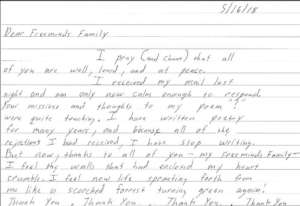 5/16/18
Dear Freeminds Family
I pray (and chant) that all
of you are well, loved, and at peace.
I received my mail last
night and am only now calm enough to respond.
Your missives and thoughts to my poem
were quite touching. I have written poetry
for many years, and because all of the
rejections I had received, I have stop writing.
But now, thanks to all of you - my Freeminds Family -
I feel the walls that had enclosed my heart
crumble. I feel new life sprouting forth from
me like a scorched forrest turning green again!
Thank You, Thank You, Thank You, Thank You